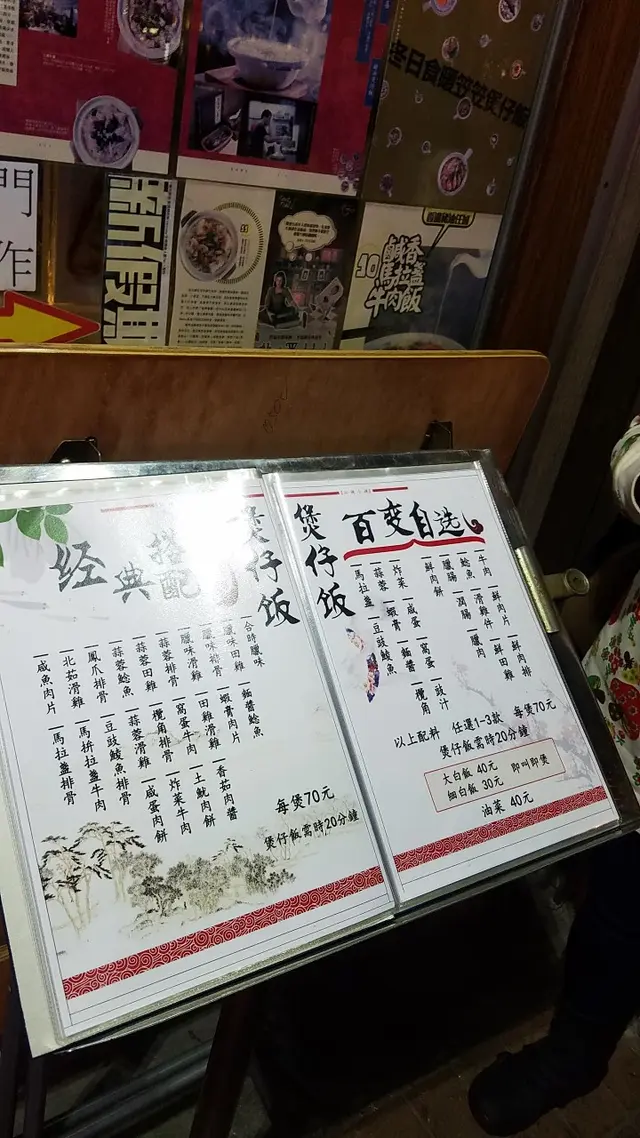 冬日食暖笠笠煲仔飯
門
作
新假期
10
鹹香
馬拉盞
牛肉飯
煲仔饭
经典搭配
合時臘味
麵醬鯰魚
臘味田雞
蝦膏肉片
香茄肉醬
臘味排骨
田雞滑雞
土魷肉餅
臘味滑雞
窩蛋牛肉
炸菜牛肉
蒜蓉排骨
欖角排骨
咸蛋肉餅
蒜蓉田雞
蒜蓉滑雞
蒜蓉鯰魚
豆豉鯪魚排骨
鳳爪排骨
馬拼拉盞牛肉
北茹滑雞
馬拉盞排骨
咸魚肉片
每煲70元
煲仔飯需時20分鐘
煲仔饭
百变自选
牛肉
鮮肉片
鮮肉排
鯰魚
滑雞件
鮮田雞
臘腸
潤腸
臘肉
鮮肉餅
炸菜
咸蛋
窩蛋
豉汁
蒜蓉
蝦膏
麵醬
欖角
馬拉盞
豆豉鯪魚
以上配料 任選1-3款 每煲70元
煲仔飯需時20分鐘
大白飯 40元
細白飯 30元
即叫即煲
油菜 40元